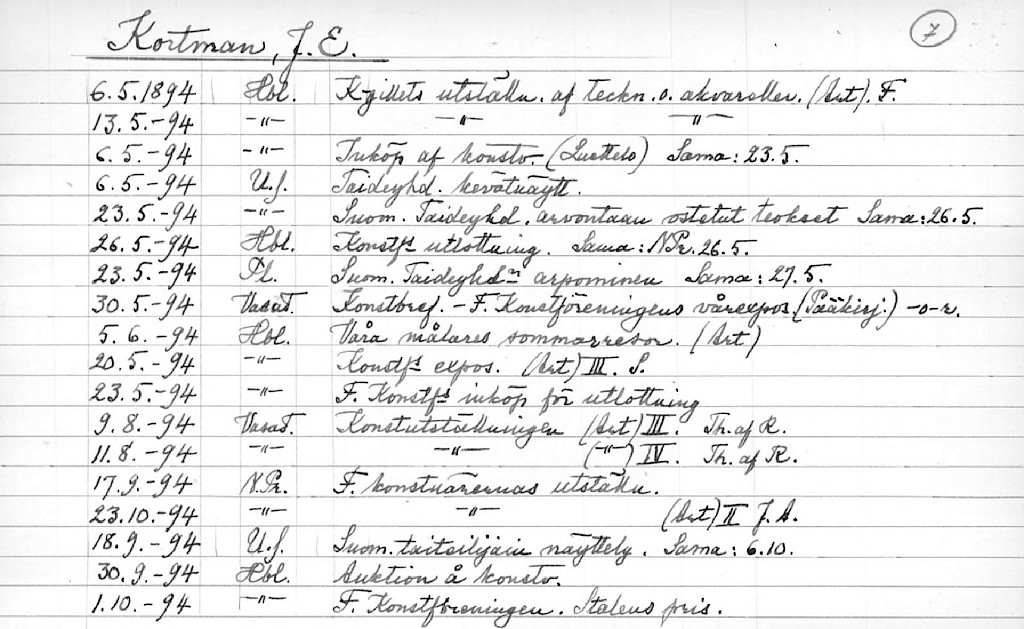 Kortman, J. E. 7
6.5.1894 Hbl. K-gillets utställn. af teckn. o. akvareller. (Art). F.
13.5.-94 -"- -"- -"-
6.5.-94 -"- Inköp af konstv. (Luettelo) Sama: 23.5.
6.5.-94 U.S. Taideyhd. kevätnäytt.
23.5.-94 -"- Suom. Taideyhd. arvontaan ostetut teokset Sama: 26.5.
26.5.-94 Hbl. Konstfs utlottning. Sama: N.Pr. 26.5.
23.5.-94 Pl. Suom. Taideyhdn arpominen Sama: 27.5.
30.5.-94 VasaT. Konstbref. - F. Konstföreningens vårexpos. (Pääkirj.) -o-r.
5.6.-94 Hbl. Våra målares sommarresor. (Art)
20.5.-94 -"- Konstfs expos. (Art) III. S.
23.5.-94 -"- F. Konstfs inköp för utlottning
9.8.-94 VasaT. Konstutställningen (Art) III. Th. af R.
11.8.-94 -"- -"- (-"-) IV. Th. af R.
17.9.-94 N.Pr. F. konstnärernas utställn.
23.10.-94 -"- -"- (Art) II J.A.
18.9.-94 U.S. Suom. taiteilijain näyttely. Sama: 6.10.
30.9.-94 Hbl. Auktion å konstv.
1.10.-94 -"- F. Konstföreningen. Statens pris.